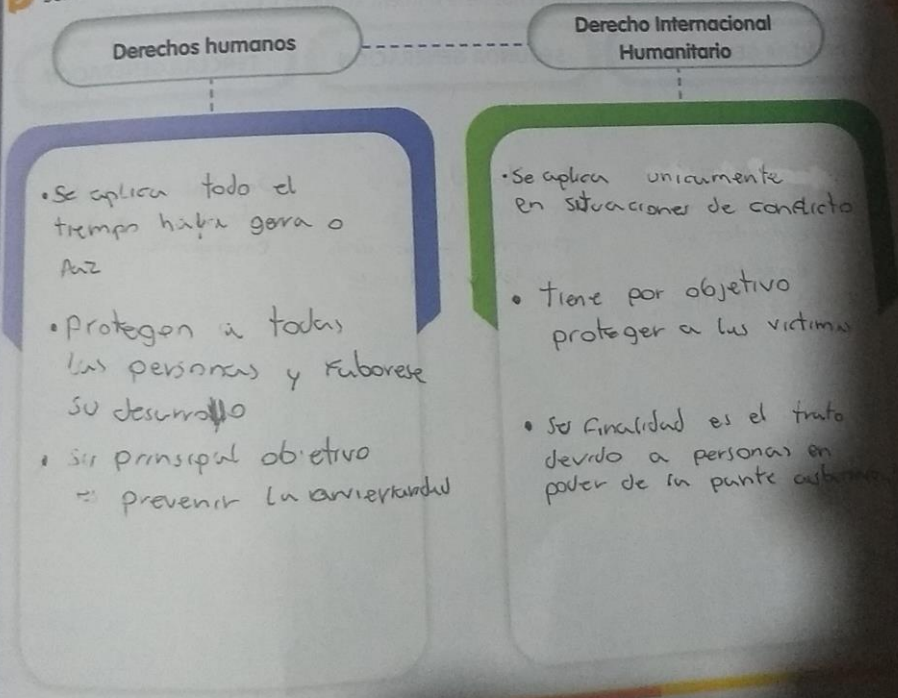 Derechos humanos
Derecho Internacional
Humanitario
• Se aplica todo el
tiempo haya gerra o
paz
• protegen a todas
las personas y
su desarrollo
• su prinsipal objetivo
es prevenir la
• Se aplica unicamente
en situaciones de conflicto
• tiene por objetivo
proteger a las victimas
• su finalidad es el trato
devido a personas en
poder de la parte